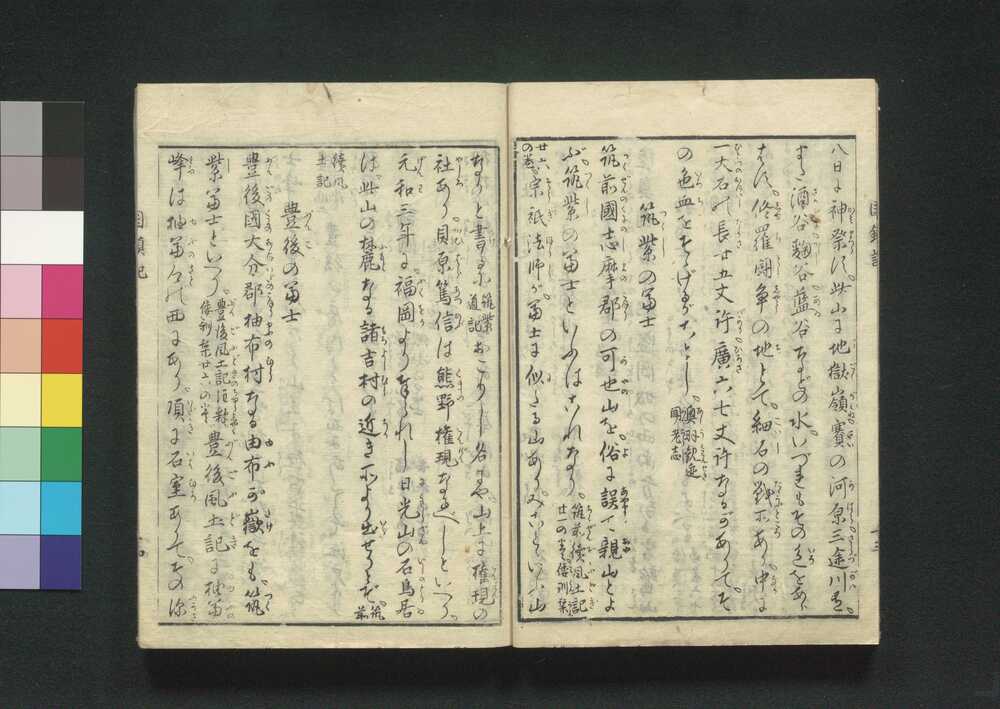 八日に神祭す此山に地獄嶺賽の河原三途川有
また酒谷麹谷藍谷などの水いづれもその色をあ
修羅闘争の地とて細石の 所あり中に
一大石の長廿五丈許廣六七丈許なるがありてそ
の色血をそゝげるがごとし
筑紫の冨士
筑前國志摩郡の可也山を俗に誤て親山とよ
ぶ筑紫の冨士といふはこれなり筑前續風土記廿一の巻倭訓栞
廿六の巻宗祇法師が冨士に似たる山ありみことといふ山
なりと書るは筑紫道記おこの 名にや山上に權現の
社あり貝原篤信は熊野權現なるべしといへり
元和三年に福岡よりたてられし日光山の石鳥居
は此山の麓なる諸吉村の近き所より出せりとぞ筑前
續風土記
豊後の冨士
豊後國大分郡柚布村なる由布が嶽をも筑
紫冨士といへり豊後風土記注釋倭訓栞廿六の巻豊後風土記に柚冨
峰は柚冨の西にあり頂に石室ありてその深